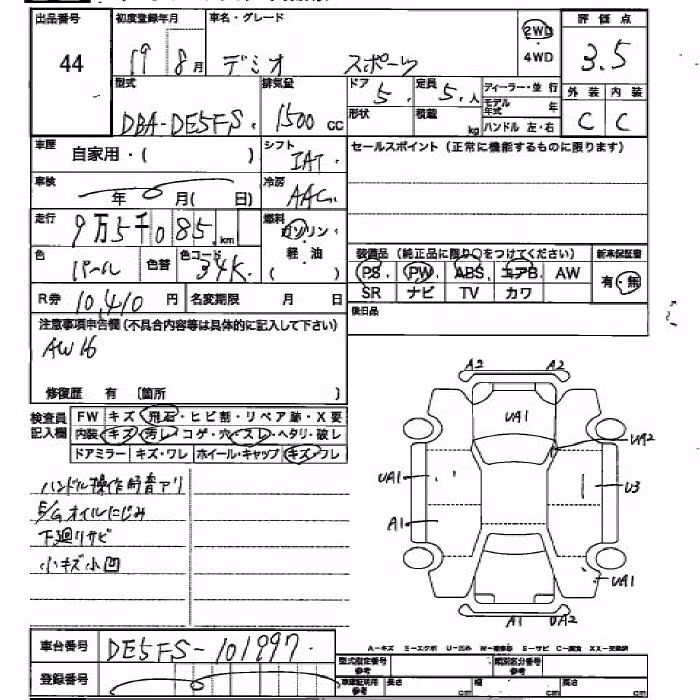 出品番号 初度登録年月 車名・グレード 評価点
44 19 8月 デミオ スポーツ 2WD ・ 4WD 3.5
型式 排気量 ドア 定員 ディーラー・並行 外装 内装
DBA-DE5FS. 1500 cc 5. 5.人 モデル年式 年 C C
形状 積載 kg ハンドル 左・右
車歴 自家用・( ) シフト IAT. セールスポイント(正常に機能するものに限ります)
車検 年 月( 日) 冷房 AAC.
走行 9万5千085.km 燃料 ガソリン・軽油
色 パール 色替 色コード 34K. 装備品(純正品に限り○をつけてください) 新車保証書
PS. PW. ABS. エアB. AW 有・無
R券 10,410円 名変期限 月 日 SR ナビ TV カワ
注意事項申告欄(不具合内容等は具体的に記入して下さい) 後日品
AW16
修復歴 有 〔箇所 〕
検査員記入欄 FW キズ・飛石・ヒビ割・リペア跡・X要
内装 キズ・汚レ・コゲ・穴・スレ・ヘタリ・破レ
ドアミラー キズ・ワレ ホイール・キャップ キズ・ワレ
ハンドル操作時音アリ
E/Gオイルにじみ
下廻りサビ
小キズ小凹
A2 A2
UA1
UA2
UA1 U3
A1
UA1
A1 UA2
車台番号 DE5FS-101997.
A-キズ E-エクボ U-凹み W-補修跡 S-サビ C-腐食 XX-交換済
登録番号 型式指定番号 参考 類別区分番号 参考
車庫証明用 参考 長さ cm 幅 cm 高さ cm